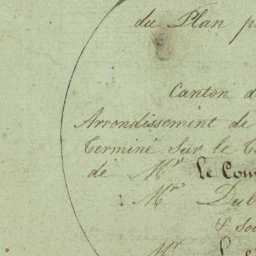 du Plan p
Canton d
Arrondissement de
Terminé sur le
de Mr Le Com
Mr Dub
& so
Mr